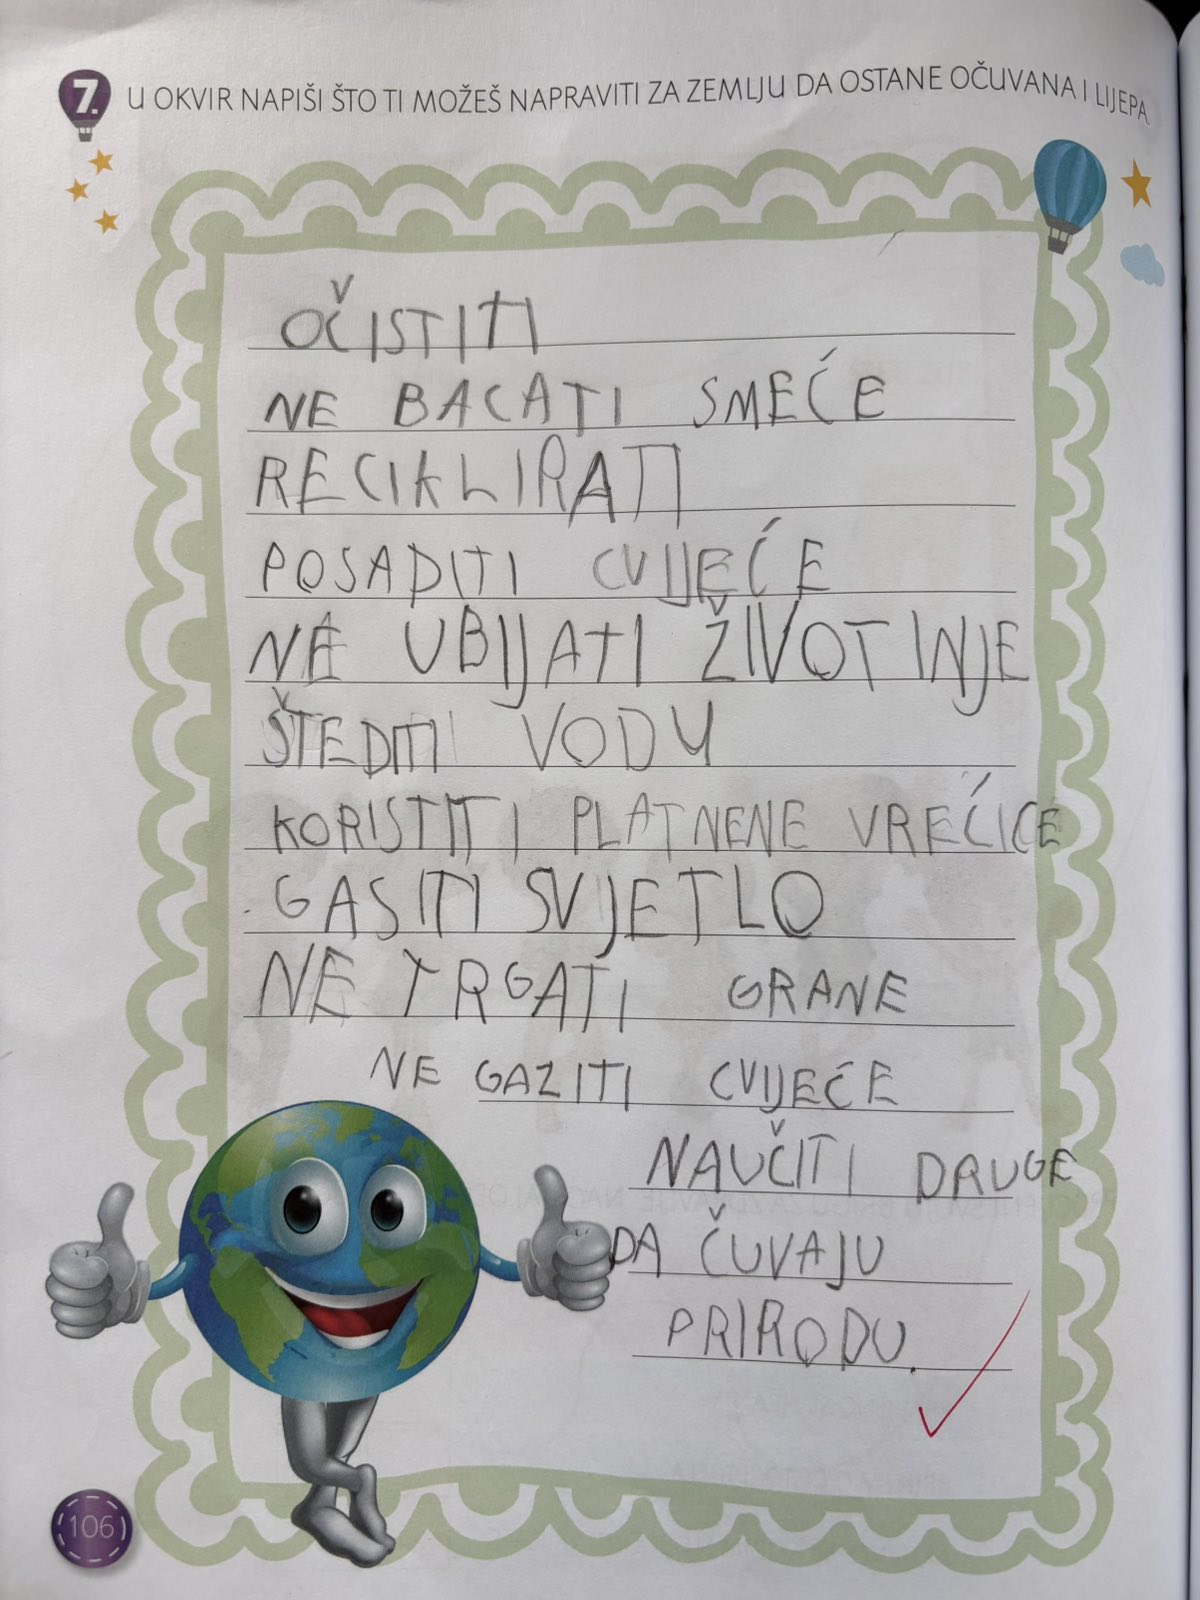 7. U OKVIR NAPIŠI ŠTO TI MOŽEŠ NAPRAVITI ZA ZEMLJU DA OSTANE OČUVANA I LIJEPA.
OČISTITI
NE BACATI SMEĆE
RECIKLIRATI
POSADITI CVIJEĆE
NE UBIJATI ŽIVOTINJE
ŠTEDITI VODU
KORISTITI PLATNENE VREĆICE
GASITI SVJETLO
NE TRGATI GRANE
NE GAZITI CVIJEĆE
NAUČITI DRUGE
DA ČUVAJU
PRIRODU.
106